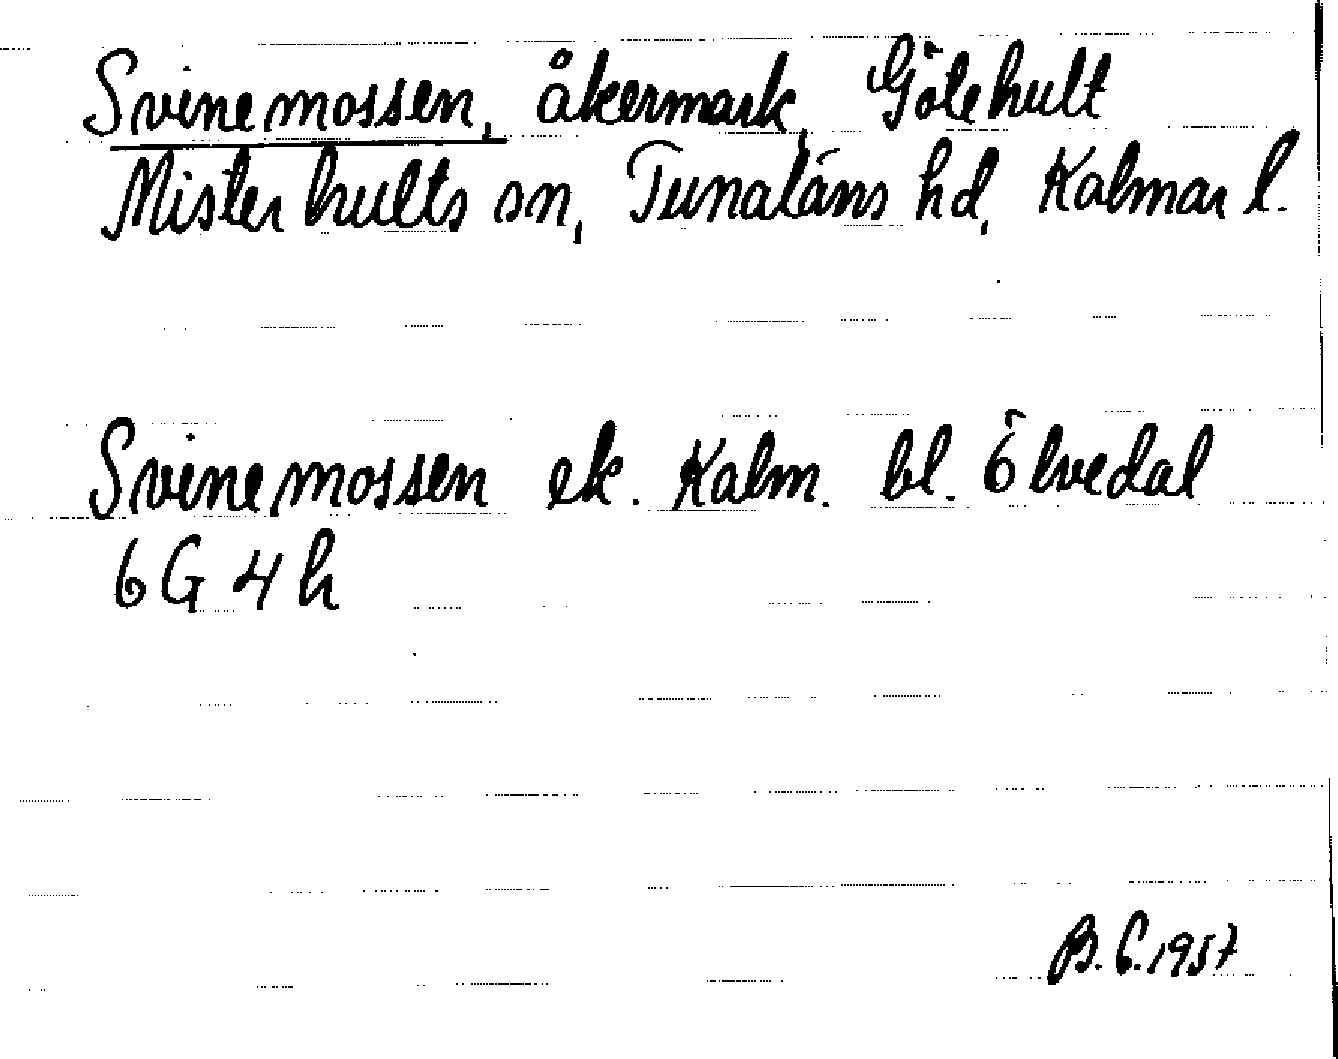 Svinemossen, åkermark, Götehult
Misterhults sn, Tunaläns hd, Kalmar l.
Svinemossen ek. Kalm. bl. Ölvedal
6G 4h
B.C.1957